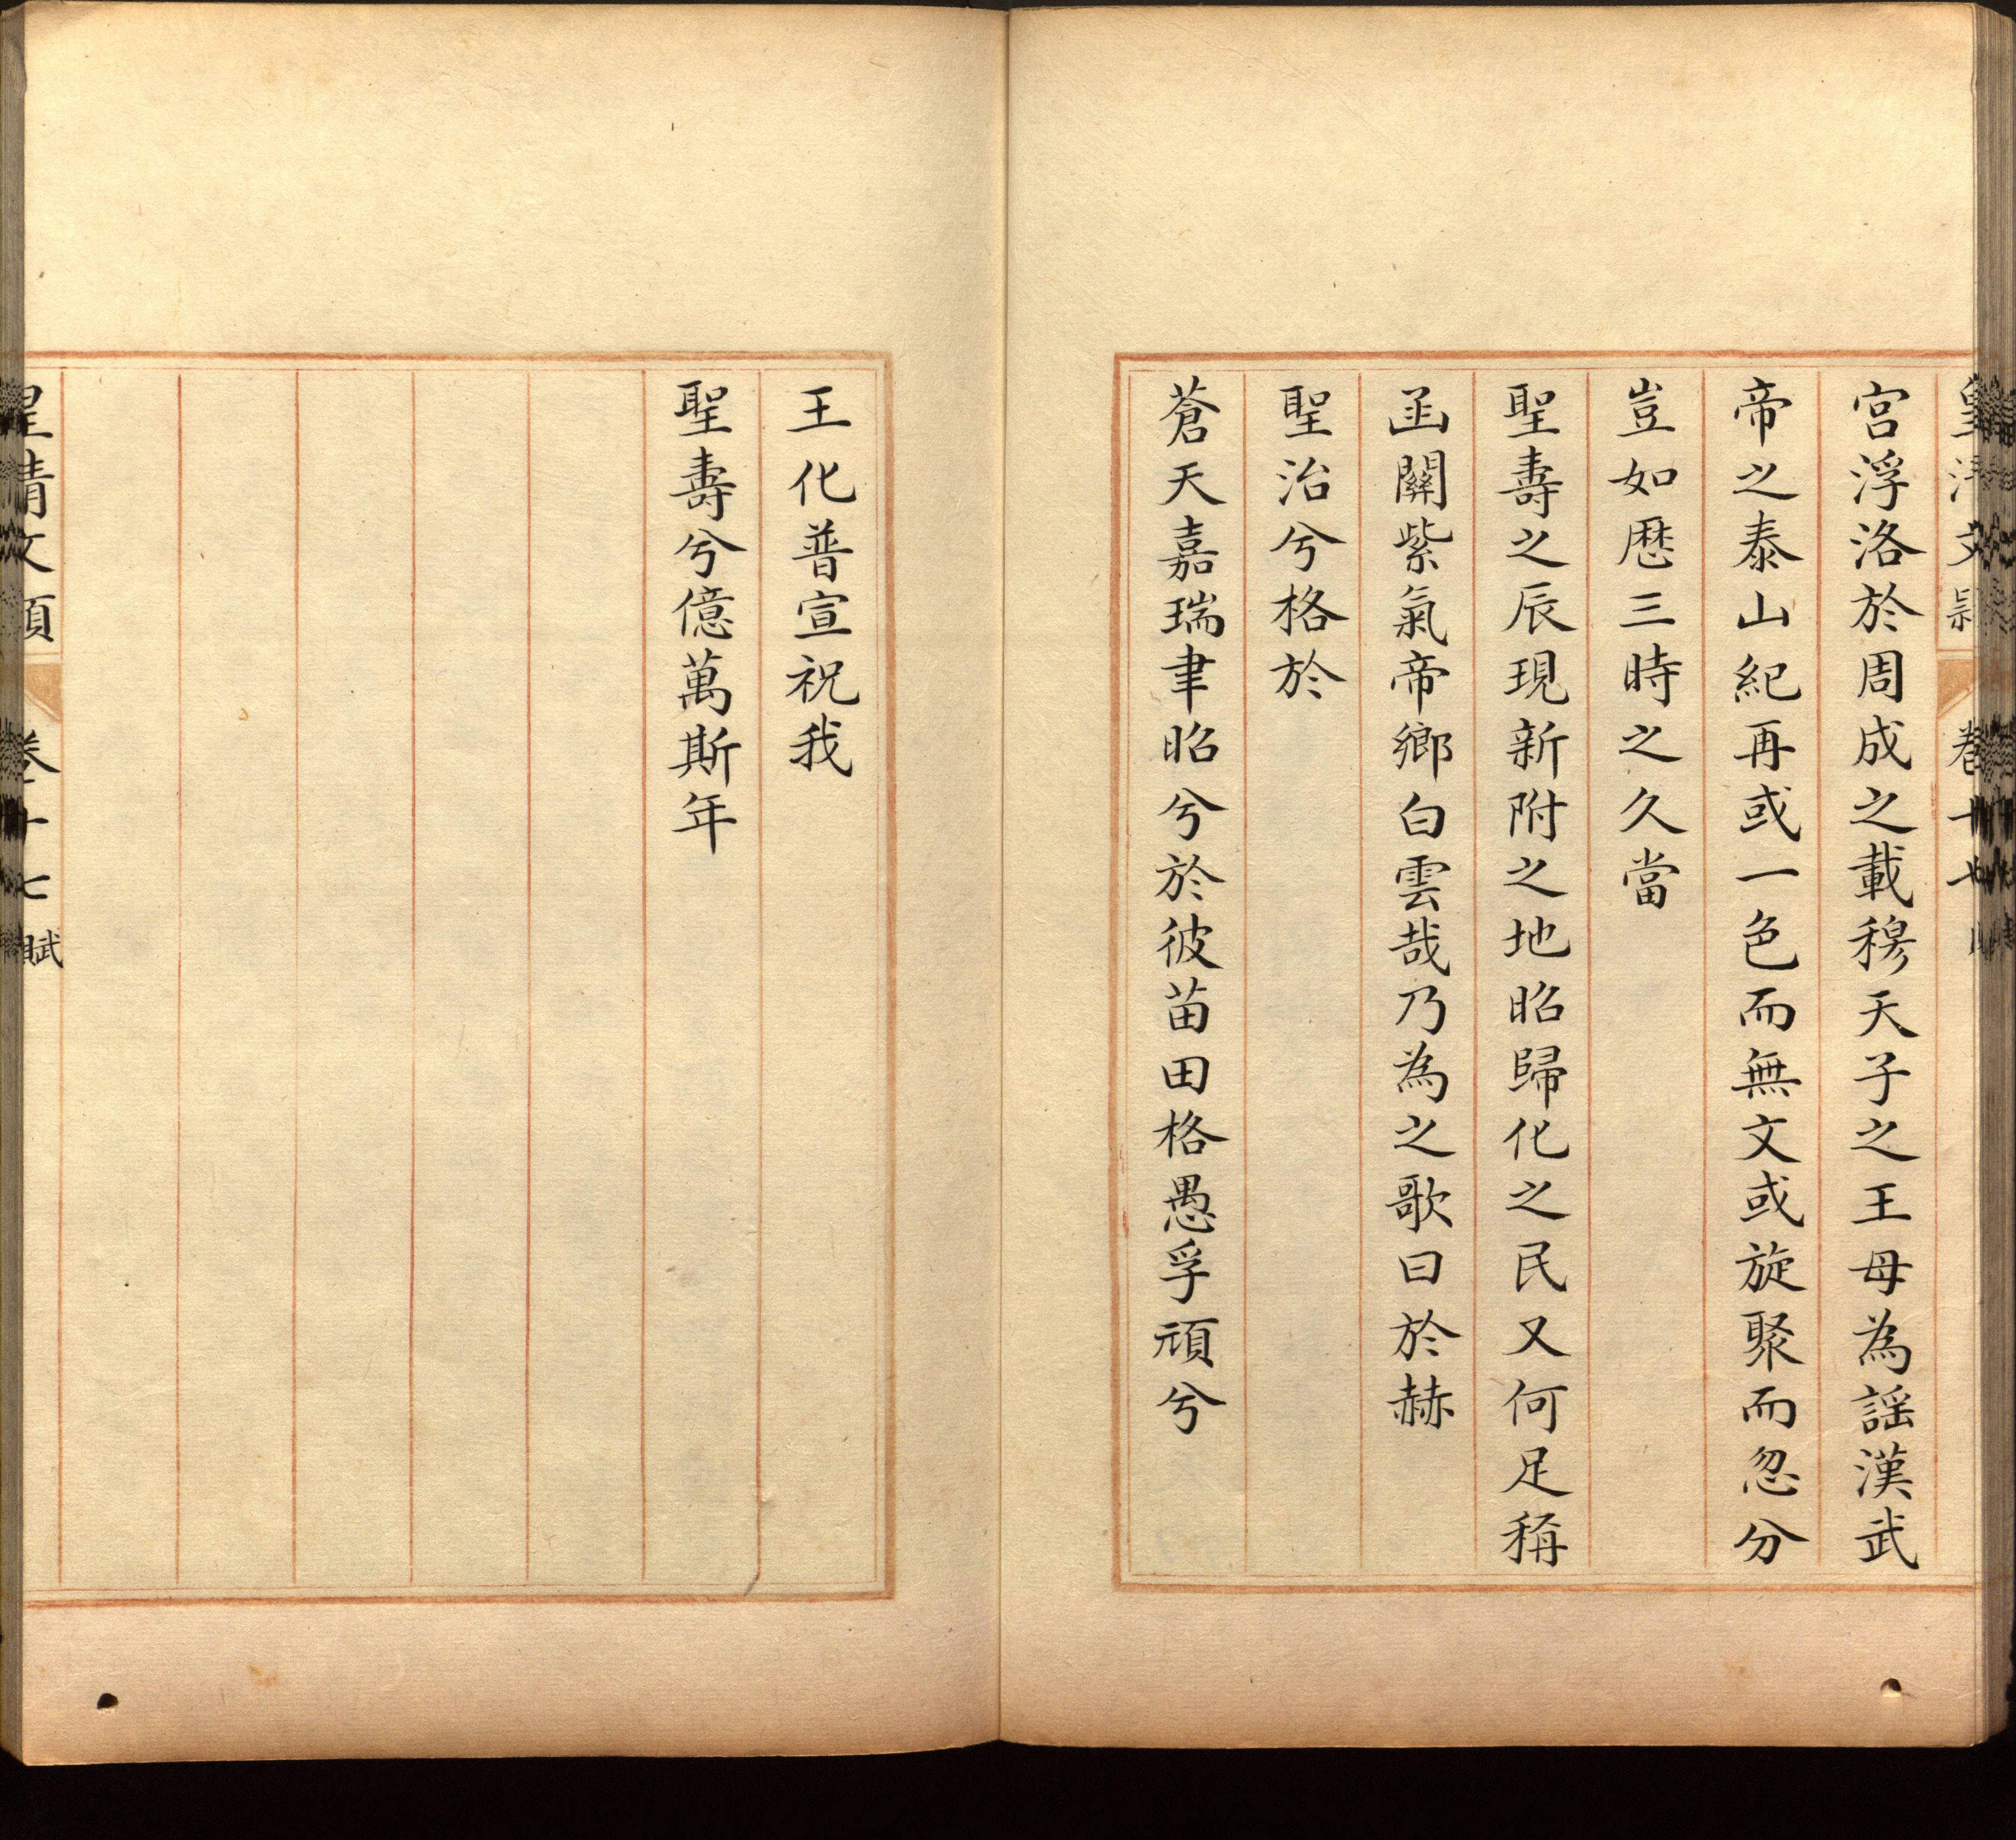 宮浮洛於周成之載穆天子之王母為謡漢武
帝之泰山紀再或一色而無文或旋聚而忽分
豈如歴三時之久當
聖壽之辰現新附之地昭歸化之民又何足稱
函關紫氣帝鄉白雲哉乃為之歌曰於赫
聖治兮格於
蒼天嘉瑞聿昭兮於彼苗田格愚孚頑兮
王化普宣祝我
聖壽兮億萬斯年
皇清文穎 卷十七 賦